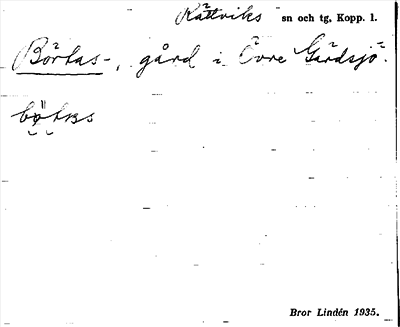 Rättviks sn och tg, Kopp. l.
Börtas-, gård i Övre Gärdsjö.
Bror Lindén 1935.